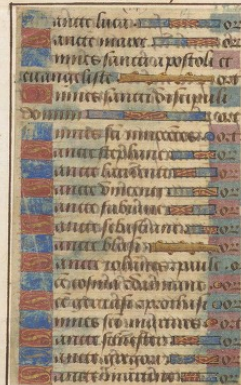 ancte luca or
ancte marce or
mnes sancti apostoli et
euangeliste or
mnes sancti discipuli
domini or
mnes sci innocētes or
ancte stephane or
ancte laurenti or
ancte vincenti or
ancte fabiane or
ancte sebastiane or
ancte blasi or
ancte iohannes et paule or
ce cosma et damiane or
ce geruasi et prothasi
mnes sci martires or
ancte siluester or
ancte gregori or
ancte martine or